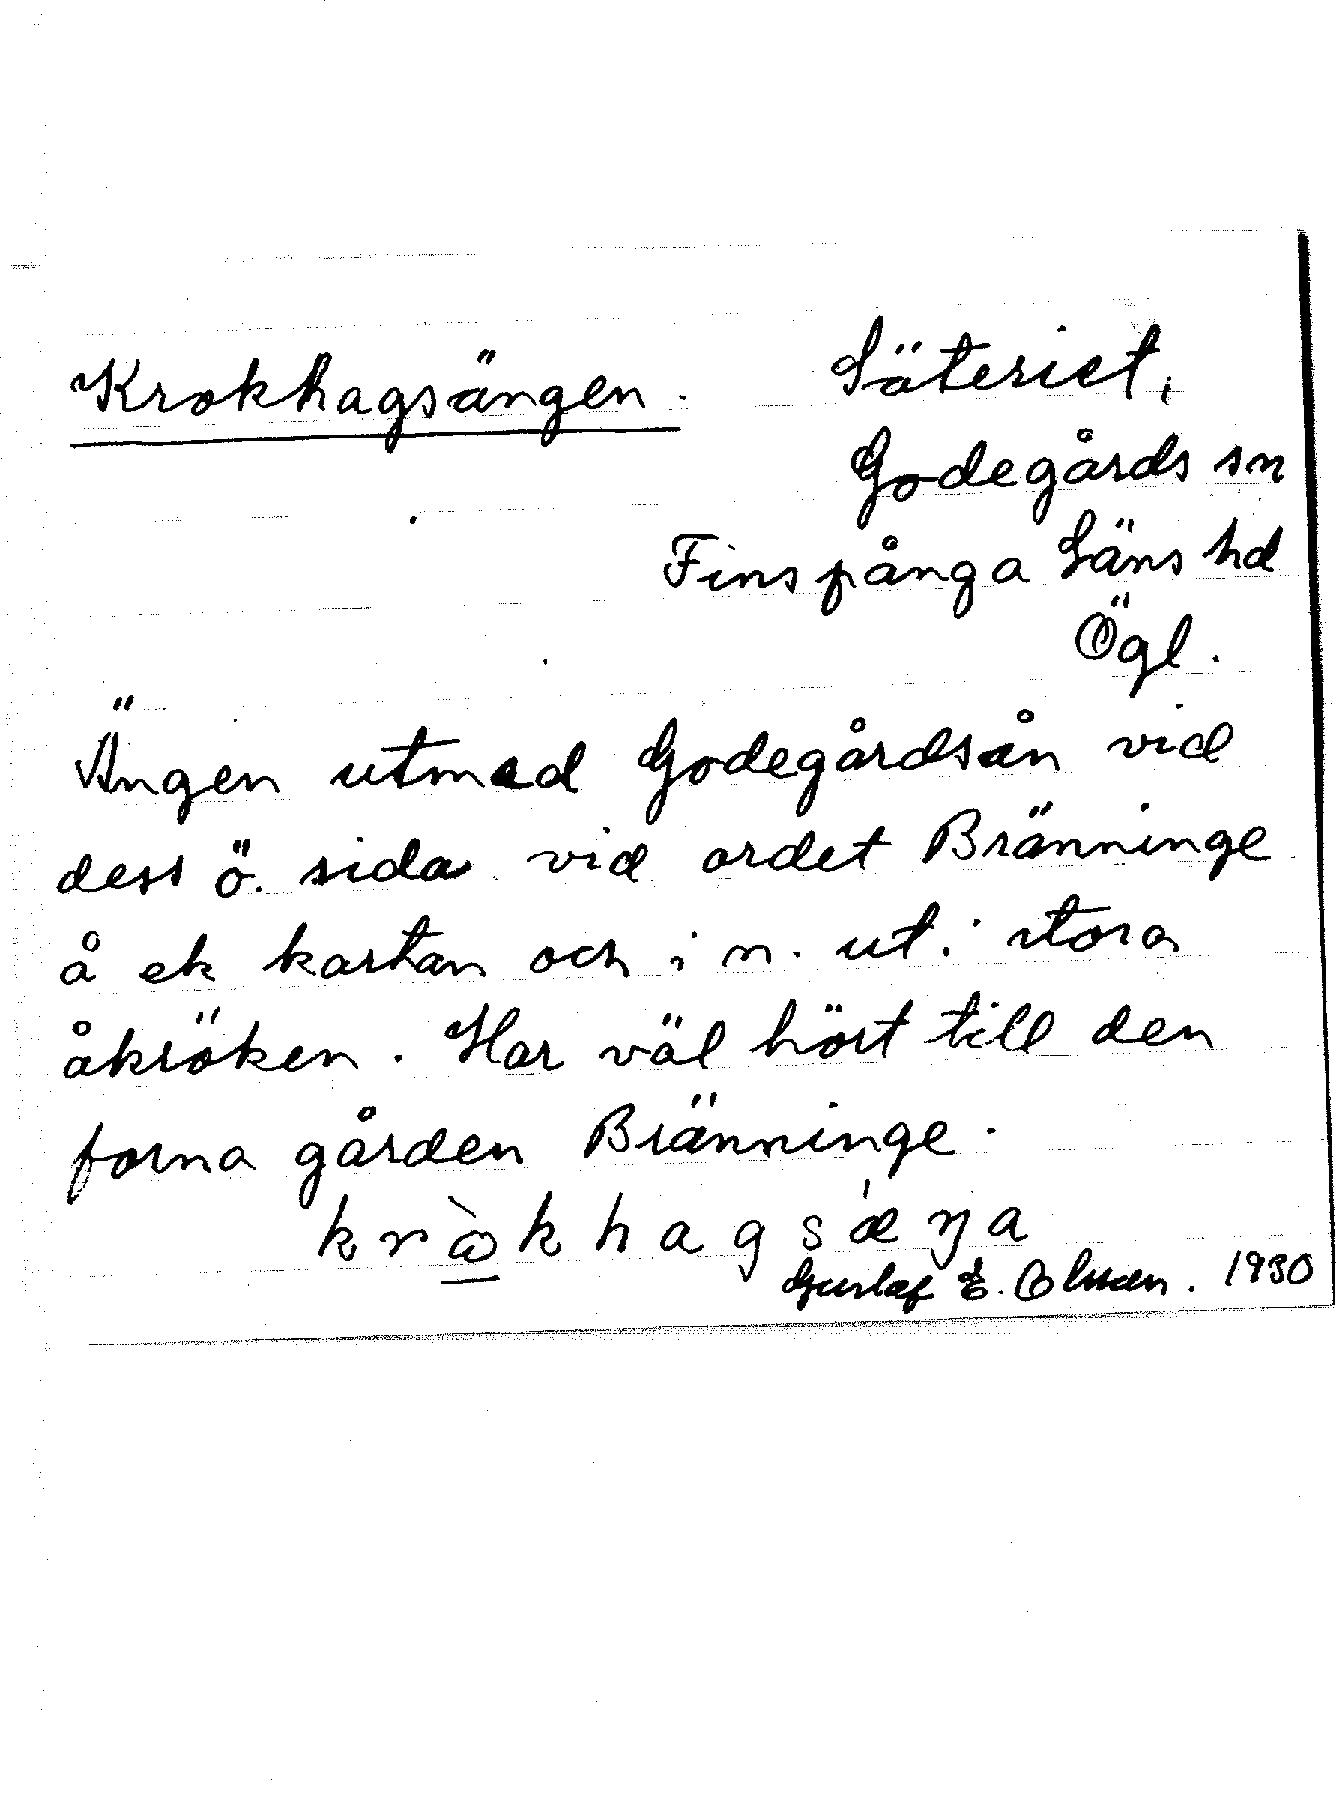 Krokhagsängen. Säteriet,
Godegårds sn
Finspånga Läns hd
Ögl.
Ängen utmed Godegårdsån vid
dess ö. sida vid ordet Bränninge
å ek kartan och i n. ut i stora
åkröken. Har väl hört till den
forna gården Bränninge.
Gustaf E. Olsson. 1930